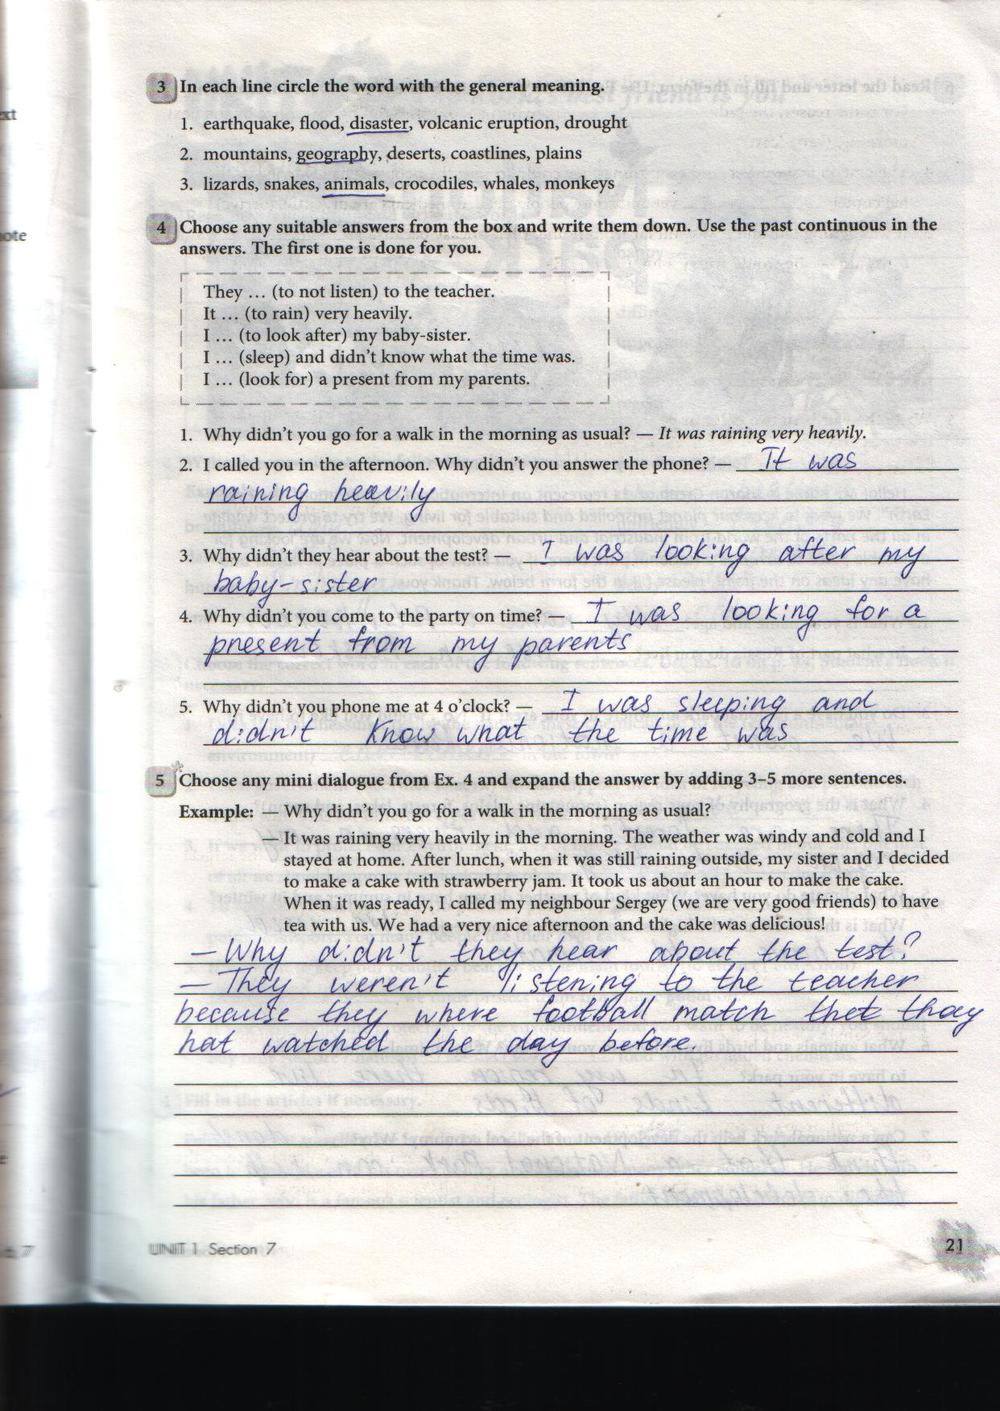 3 In each line circle the word with the general meaning.
1. earthquake, flood, disaster, volcanic eruption, drought
2. mountains, geography, deserts, coastlines, plains
3. lizards, snakes, animals, crocodiles, whales, monkeys
4 Choose any suitable answers from the box and write them down. Use the past continuous in the
answers. The first one is done for you.
They … (to not listen) to the teacher.
It … (to rain) very heavily.
I … (to look after) my baby-sister.
I … (sleep) and didn't know what the time was.
I … (look for) a present from my parents.
1. Why didn't you go for a walk in the morning as usual? — It was raining very heavily.
2. I called you in the afternoon. Why didn't you answer the phone? — It was
raining heavily
3. Why didn't they hear about the test? — I was looking after my
baby-sister
4. Why didn't you come to the party on time? — I was looking for a
present from my parents
5. Why didn't you phone me at 4 o'clock? — I was sleeping and
didn't know what the time was
5* Choose any mini dialogue from Ex. 4 and expand the answer by adding 3–5 more sentences.
Example: — Why didn't you go for a walk in the morning as usual?
— It was raining very heavily in the morning. The weather was windy and cold and I
stayed at home. After lunch, when it was still raining outside, my sister and I decided
to make a cake with strawberry jam. It took us about an hour to make the cake.
When it was ready, I called my neighbour Sergey (we are very good friends) to have
tea with us. We had a very nice afternoon and the cake was delicious!
— Why didn't they hear about the test?
— They weren't listening to the teacher
because they where football match thet thay
hat watched the day before.
UNIT 1 Section 7
21